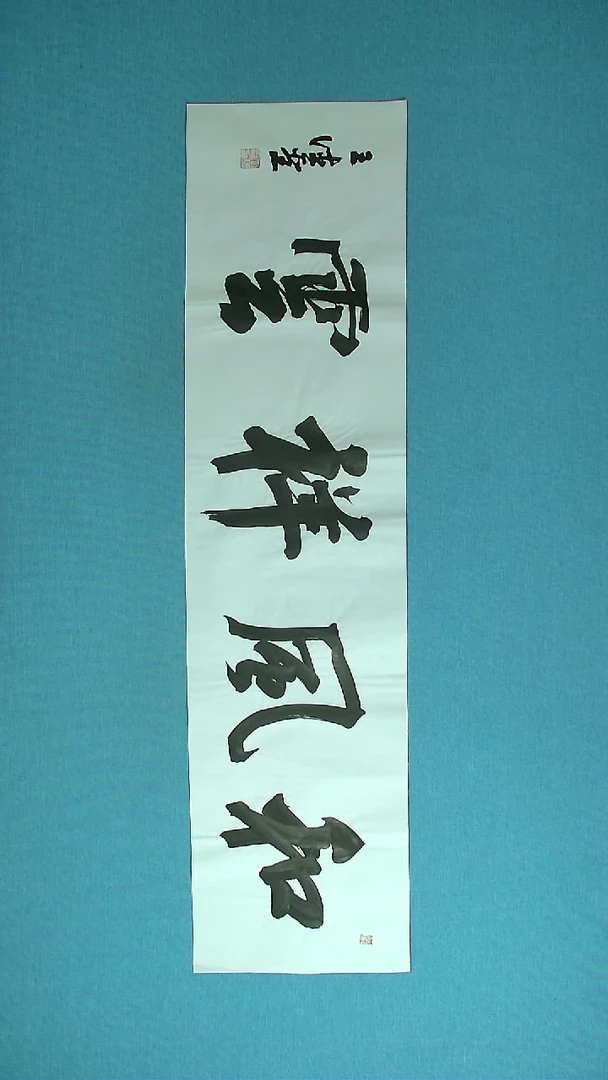 和風祥雲